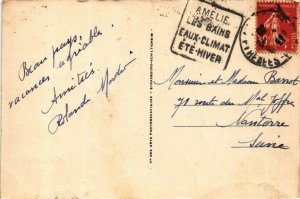 Beau pays,
vacances agréable
Amitiés
Rolande
AMÉLIE
LES BAINS
EAUX-CLIMAT
ÉTÉ-HIVER
Monsieur et Madame
71 route du Mal Joffre
Nanterre
Seine